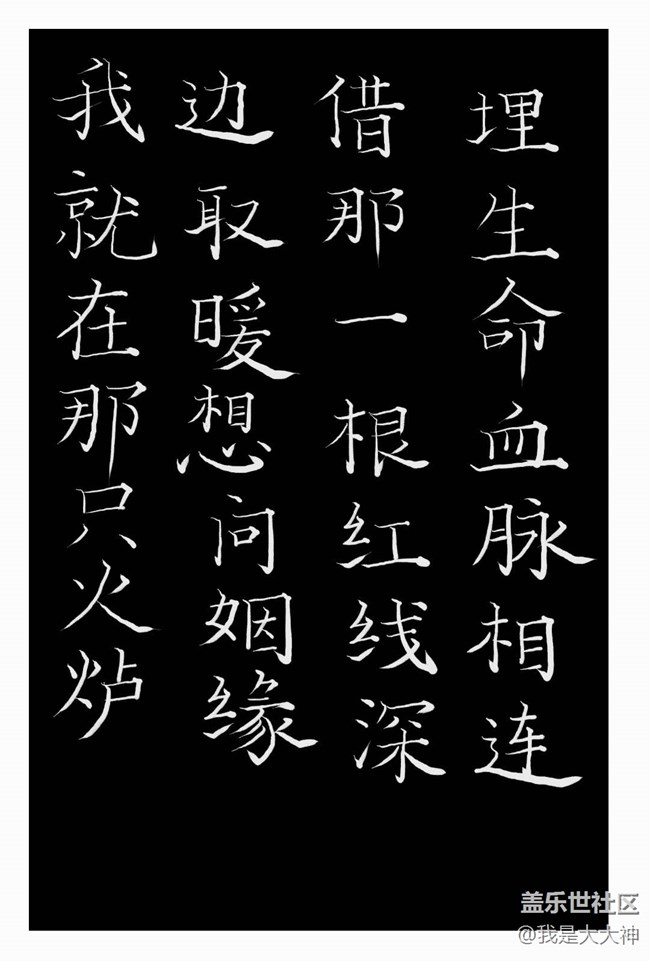 我就在那只火炉
边取暖想问姻缘
借那一根红线深
埋生命血脉相连
盖乐世社区
@我是大大神